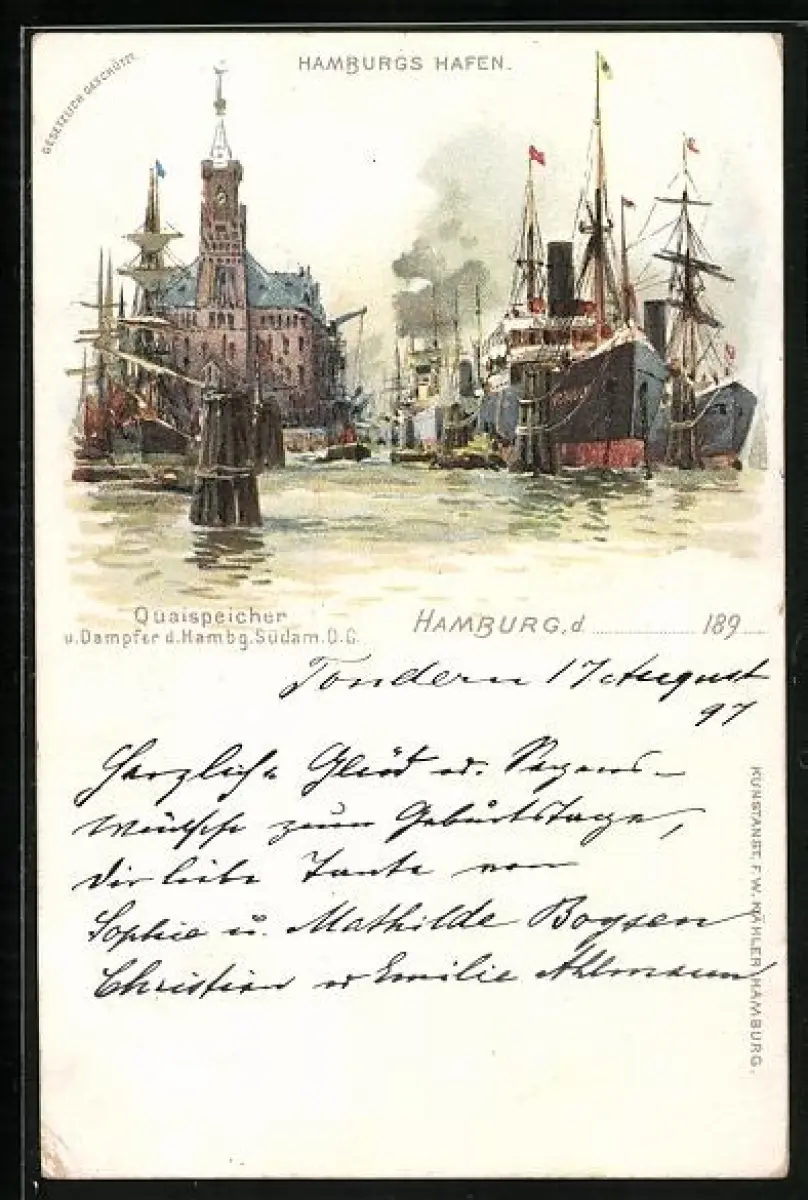 HAMBURGS HAFEN.
GESETZLICH GESCHÜTZT.
Quaispeicher
u. Dampfer d. Hambg. Südam. D.G.
HAMBURG, d. 189
Tondern 17 August
97
Herzliche Glück u. Segens-
wünsche zum Geburtstage,
Dir liebe Tante von
Sophie u. Mathilde Boysen
Christian u Emilie Ahlmann
KUNSTANST. F. W. KÄHLER, HAMBURG.